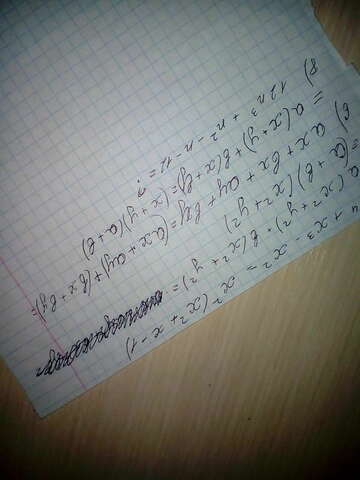 4 + x³ - x² = x² (x² + x - 1)
a (x² + y²) + b (x² + y²) =
= (a + b) (x² + y²)
б) ax + bx + ay + by = (ax + ay) + (bx + by) =
= a(x + y) + b(x + y) = (x + y)(a + b)
8) 12n³ + n² - n - 12 = ?